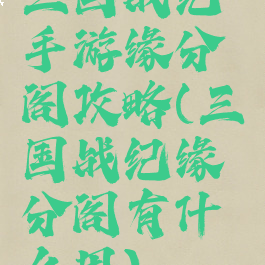 三国战纪
手游缘分
阁攻略(三
国战纪缘
分阁有什
么用)